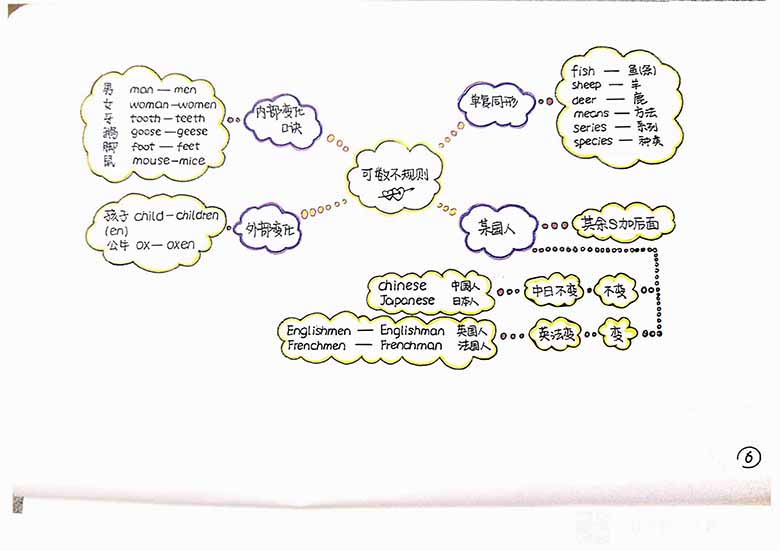 男 man — men
女 woman — women
牙 tooth — teeth
鹅 goose — geese
脚 foot — feet
鼠 mouse — mice
内部变化
口诀
孩子 child — children
(en)
公牛 ox — oxen
外部变化
可数不规则
单复同形
fish — 鱼(条)
sheep — 羊
deer — 鹿
means — 方法
series — 系列
species — 种类
某国人
其余S加后面
chinese 中国人
Japanese 日本人
中日不变
不变
Englishmen — Englishman 英国人
Frenchmen — Frenchman 法国人
英法变
变
6